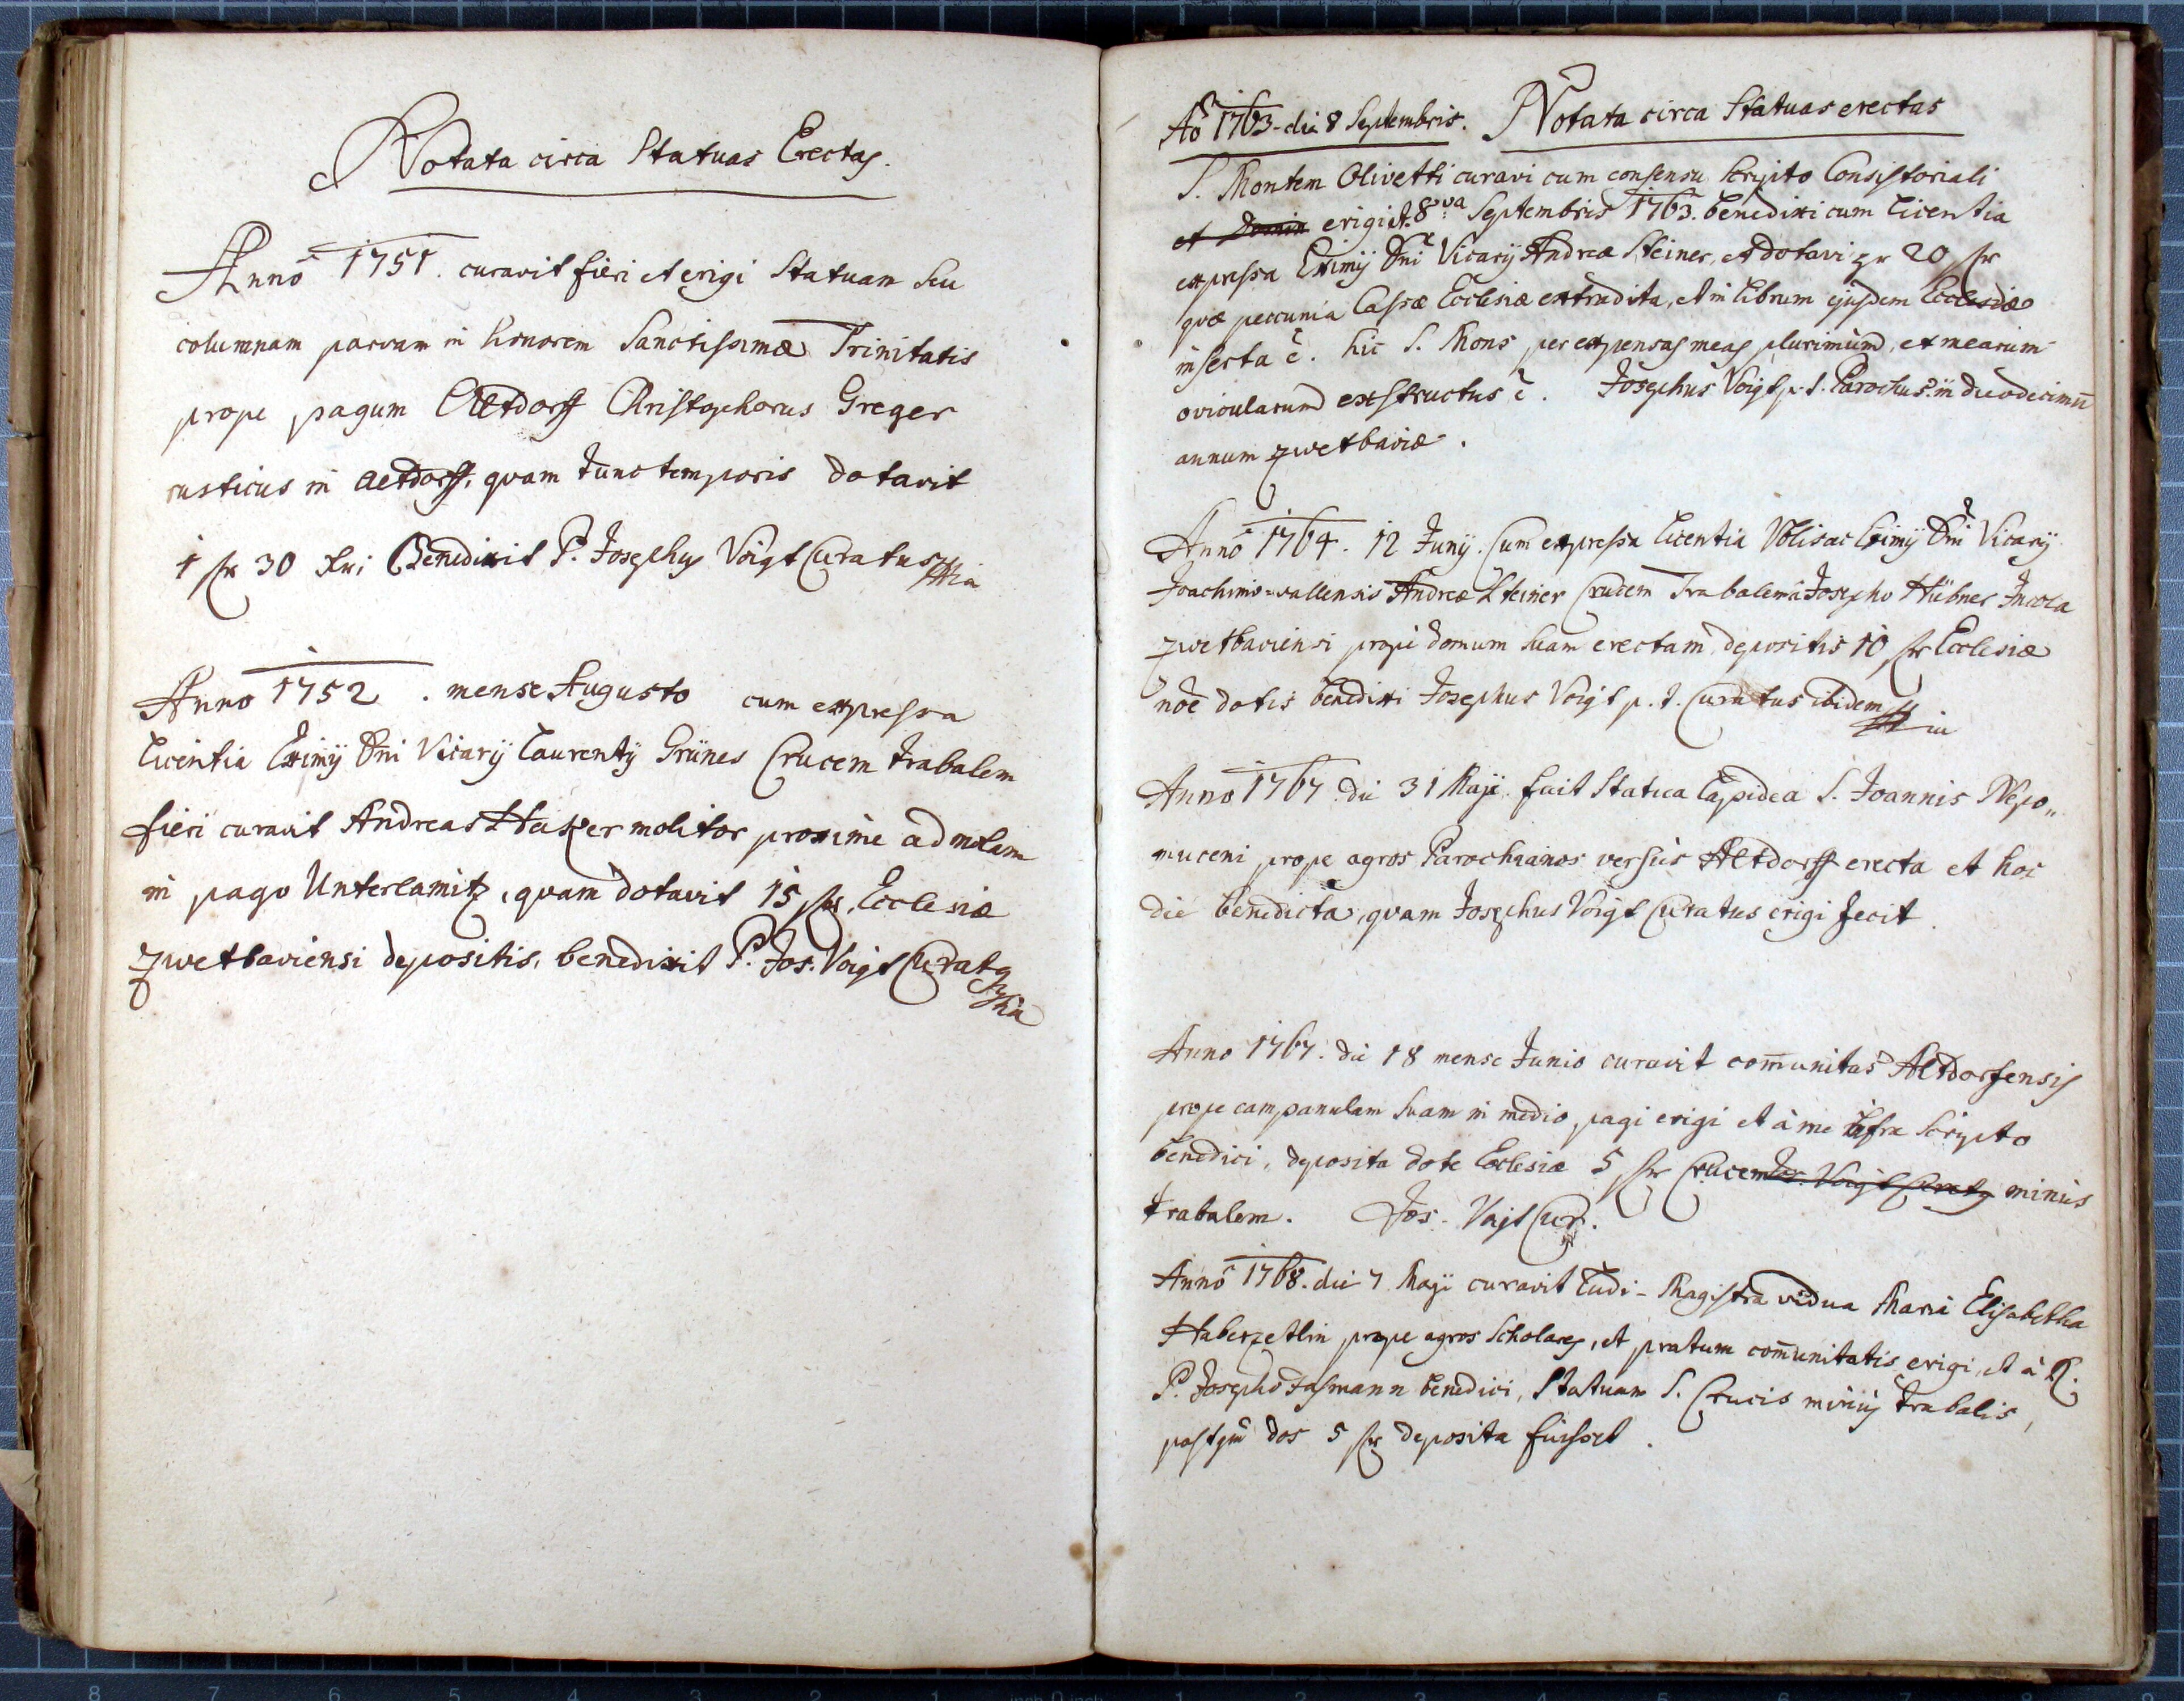 Notata circa Statuas Erectas.
Anno 1751. curavit fieri et erigi Statuam seu
columnam parvam in honorem Sanctissimæ Trinitatis
prope pagum Altdorff Christophorus Greger
rusticus in Altdorff, quam tunc temporis dotavit
1 fr 30 Xr; Benedixit P. Josephus Voigt Curatus
Anno 1752. mense Augusto cum expressa
licentia Eximij Dni Vicarij Laurentij Grünes Crucem trabalem
fieri curavit Andreas molitor proxime ad molam
in pago Unterlamitz, quam dotavit 15 fr. Ecclesiæ
zwetbaviensi depositis, benedixit P. Jos. Voigt Curatq
Ao 1763 die 8 Septembris. Notata circa Statuas erectas
S. Montem Olivetti curavi cum consensu scripto Consistoriali
et erigi et 8va Septembris 1763. benedixi cum licentia
expressa Eximij Dni Vicarij Andreæ Steiner, et dotavi 20 fr
quæ peccunia Cassæ Ecclesiæ extradita, et in librum ejusdem Ecclesiæ
inserta ē. hic S. Mons per expensas meas plurimum, et mearum
ovicularum exstructus ē. Josephus Voigt p. t. Parochus in duodecimū
annum zwetbaviæ.
Anno 1764. 12 Junij. Cum expressa licentia Nobilis ac Eximij Dni Vicarij
Joachimo=vallensis Andreæ Steiner Crucem Trabalem à Josepho Hübner Incola
zwetbaviensi prope domum suam erectam, depositis 10 fr Ecclesiæ
noē dotis benedixi Josephus Voigt p. t. Curatus ibidem
Anno 1767. die 31 Maji. fuit Statua lapidea S. Joannis Nepo„
muceni prope agros Parochianos versus Altdorff erecta et hoc
die benedicta, quam Josephus Voigt Curatus erigi fecit.
Anno 1767. die 18 mense Junio curavit com̄unitas Altdorfensis
prope campanulam suam in medio pagi erigi et à me infra scripto
benedici, deposita dote Ecclesiæ 5 fr Crucem Jos. Voigt Curatq minus
trabalem. Jos. Voigt Cur.
Anno 1768. die 7 Maji curavit Ludi-Magistra vidua Maria Elisabetha
Haberzetlin prope agros Scholares, et pratum com̄unitatis erigi, et à R.
P. Josepho Tasmann benedici, Statuam S. Crucis minus trabalis,
postqm̄ dos 5 fr deposita fuisset.